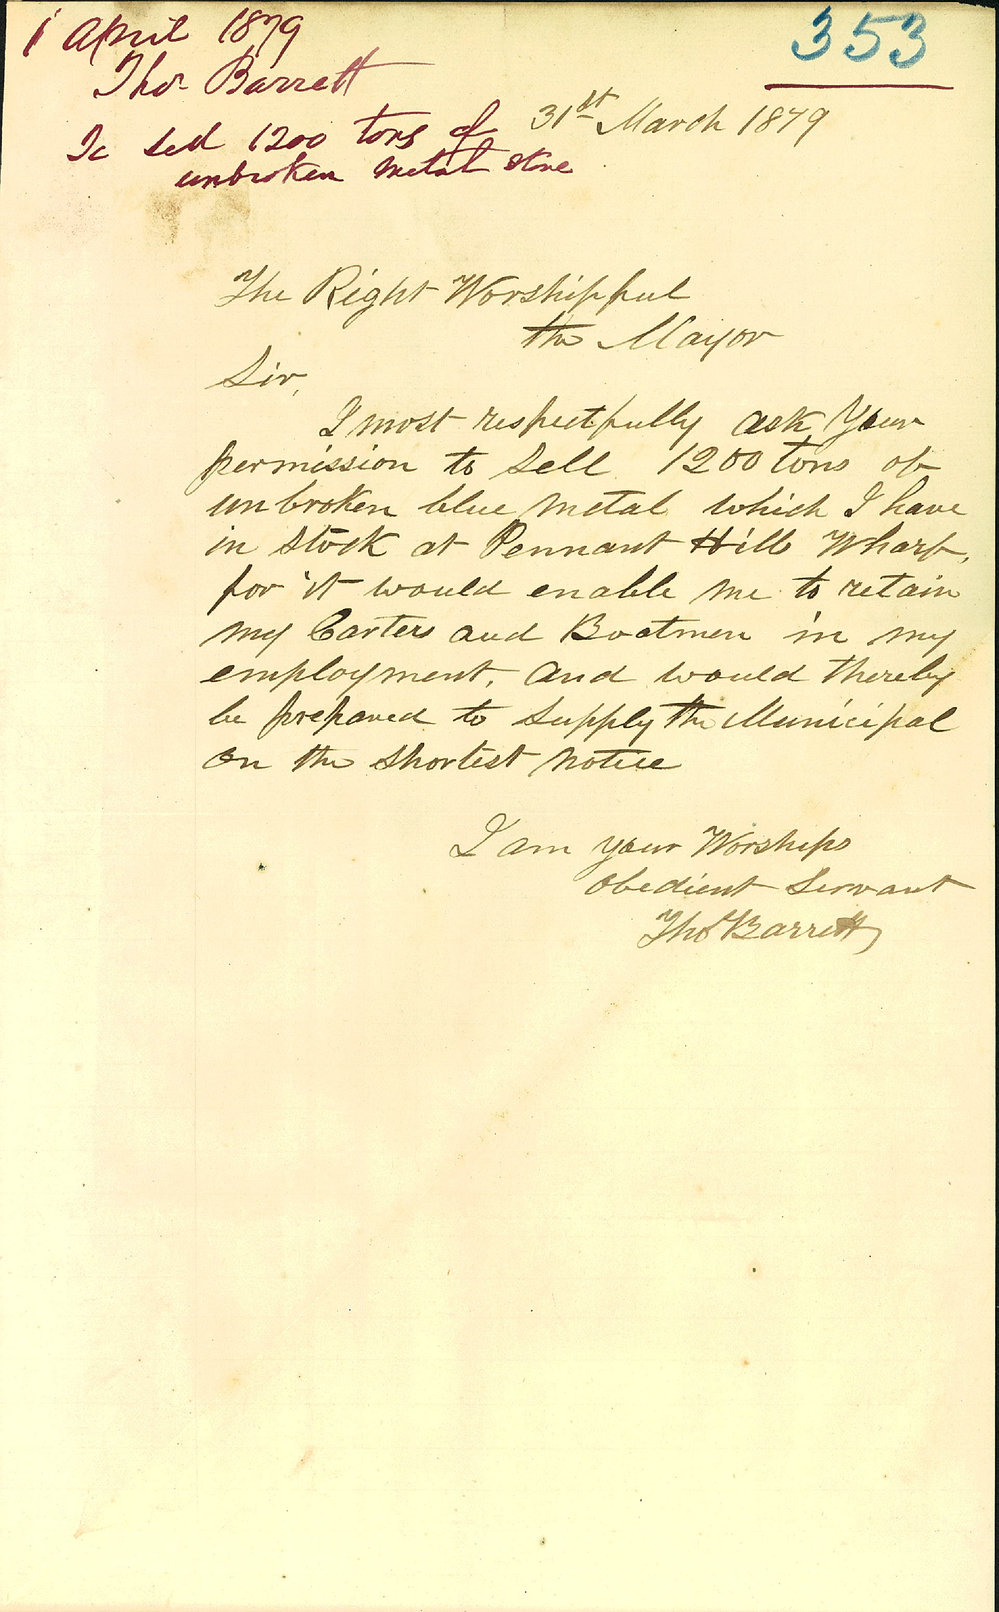 1 April 1879
Thos Barrett
To sell 1200 tons of
unbroken metal stone
353
31st March 1879
The Right Worshipful
the Mayor
Sir,
I most respectfully ask Your
permission to sell 1200 tons of
unbroken blue metal which I have
in stock at Pennant Hills Wharf,
for it would enable me to retain
my Carters and Boatmen in my
employment, and would thereby
be prepared to supply the Municipal
on the shortest notice
I am your Worships
obedient Servant
Thos Barrett